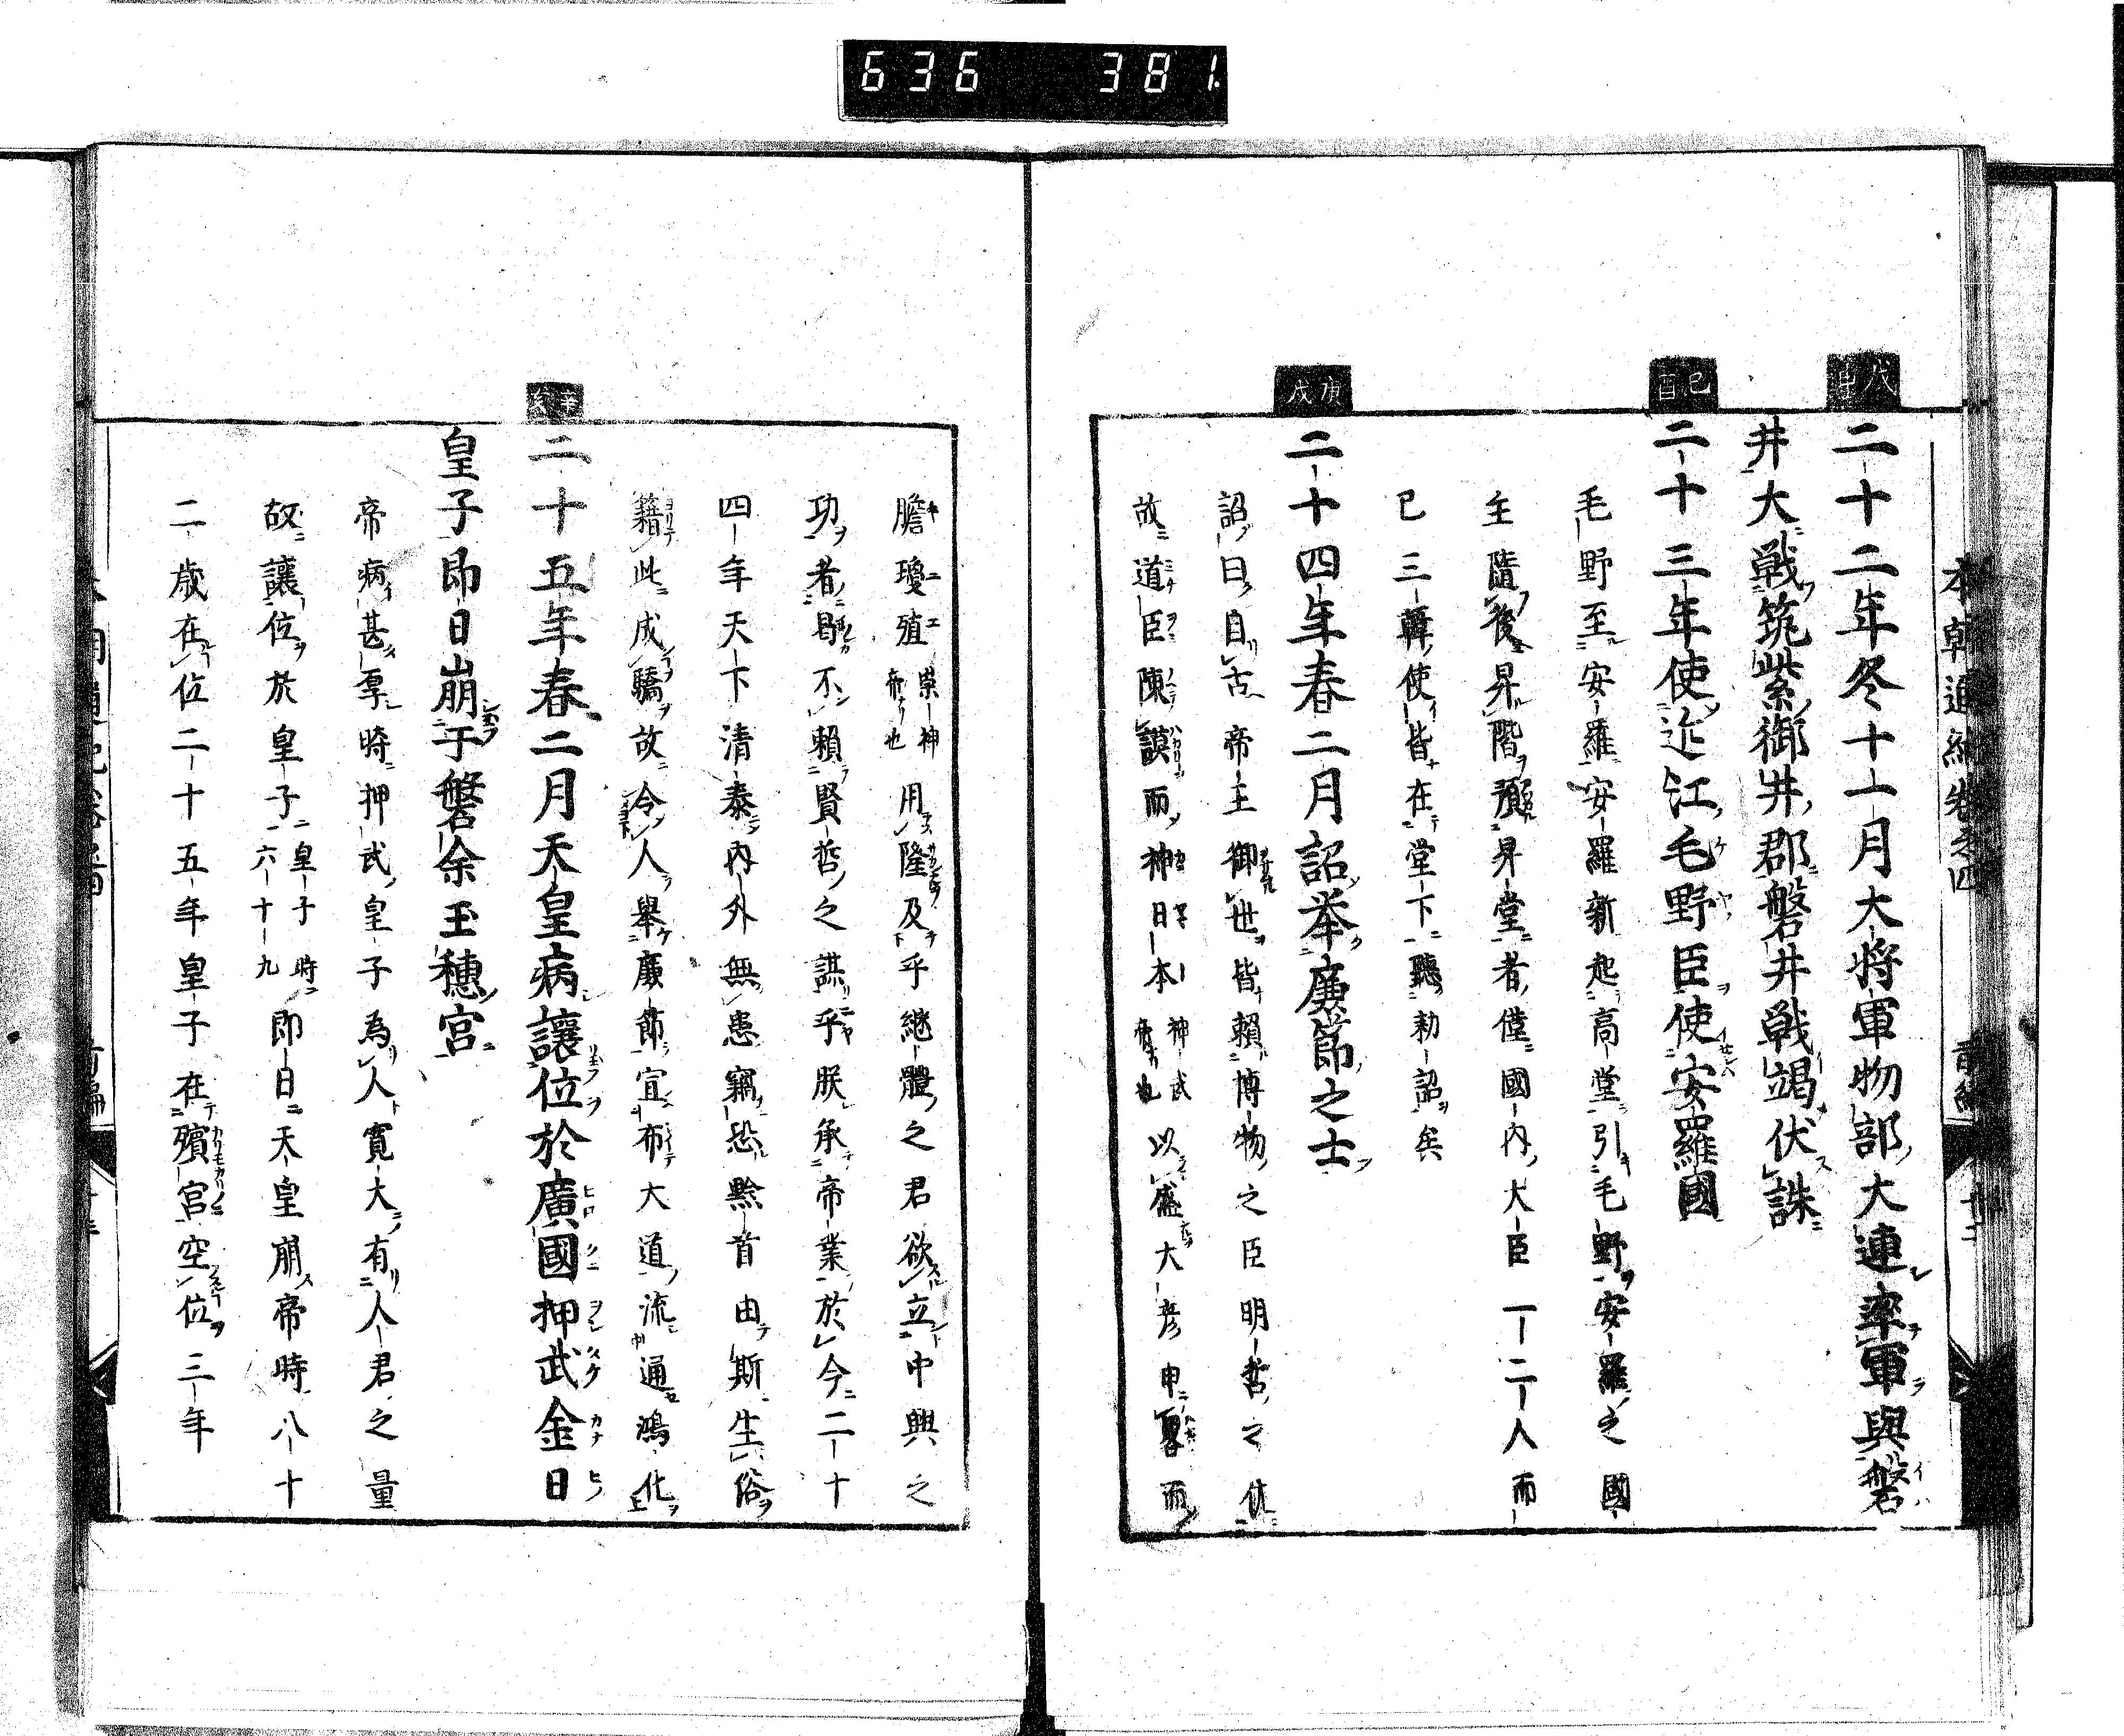 636 381
本朝通紀卷之四 前編 十二
戊申
二十二年冬十一月大將軍物部大連率軍與磐
井大戦筑紫御井郡磐井戦竭伏誅
己酉
二十三年使近江毛野臣使安羅國
毛野至安羅安羅新起高堂引毛野安羅之國
主隨後昇階預昇堂者僅國内大臣一二人而
已三韓使皆在堂下聽勅詔矣
庚戌
二十四年春二月詔举廉節之士
詔曰自古帝主御世皆賴博物之臣明哲之佐
故道臣陳謨而神日本神武帝也以盛大彦申畧而
膽瓊殖崇神帝也用隆及乎継體之君欲立中興之
功者曷不賴賢哲之謀乎朕承帝業於今二十
四年天下清泰内外無患竊恐黔首由斯生俗
籍此成驕故令人舉廉節宣布大道流通鴻化
辛亥
二十五年春二月天皇病讓位於廣國押武金日
皇子即日崩于磐余玉穗宮
帝病甚厚時押武皇子為人寛大有人君之量
故讓位於皇子皇子時六十九即日天皇崩帝時八十
二歳在位二十五年皇子在殯宮空位三年